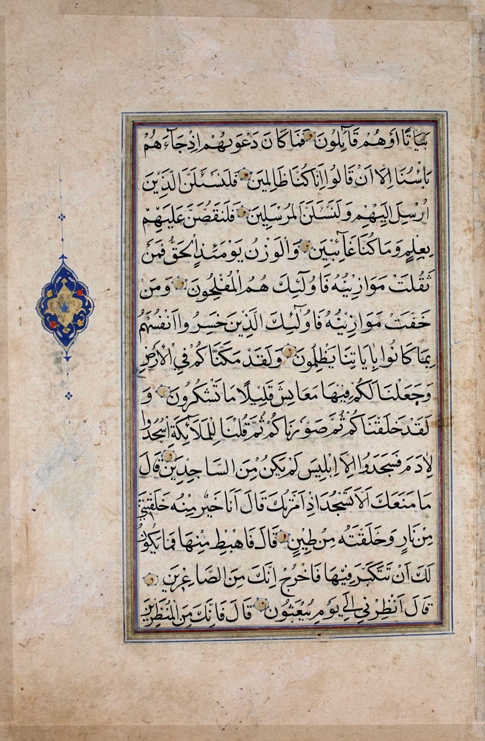 بَيَاتًا اَوْهُمْ قَآئِلُونَ فَمَا كَانَ دَعْوٰيهُمْ اِذْجَآءَهُمْ
بَاْسُنَا اِلَّا اَنْ قَالُوا اِنَّا كُنَّا ظَالِمِينَ فَلَنَسْئَلَنَّ الَّذِينَ
اُرْسِلَ اِلَيْهِمْ وَلَنَسْئَلَنَّ الْمُرْسَلِينَ فَلَنَقُصَّنَّ عَلَيْهِمْ
بِعِلْمٍ وَمَا كُنَّا غَآئِبِينَ وَالْوَزْنُ يَوْمَئِذٍ الْحَقُّ فَمَنْ
ثَقُلَتْ مَوَازِينُهُ فَاُولٰٓئِكَ هُمُ الْمُفْلِحُونَ وَمَنْ
خَفَّتْ مَوَازِينُهُ فَاُولٰٓئِكَ الَّذِينَ خَسِرُوا اَنْفُسَهُمْ
بِمَا كَانُوا بِاٰيَاتِنَا يَظْلِمُونَ وَلَقَدْ مَكَّنَّاكُمْ فِي الْاَرْضِ
وَجَعَلْنَا لَكُمْ فِيهَا مَعَايِشَ قَلِيلًا مَا تَشْكُرُونَ وَ
لَقَدْ خَلَقْنَاكُمْ ثُمَّ صَوَّرْنَاكُمْ ثُمَّ قُلْنَا لِلْمَلٰٓئِكَةِ اسْجُدُوا
لِاٰدَمَ فَسَجَدُوا اِلَّا اِبْلِيسَ لَمْ يَكُنْ مِنَ السَّاجِدِينَ قَالَ
مَا مَنَعَكَ اَلَّا تَسْجُدَ اِذْ اَمَرْتُكَ قَالَ اَنَا خَيْرٌ مِنْهُ خَلَقْتَنِي
مِنْ نَارٍ وَخَلَقْتَهُ مِنْ طِينٍ قَالَ فَاهْبِطْ مِنْهَا فَمَا يَكُونُ
لَكَ اَنْ تَتَكَبَّرَ فِيهَا فَاخْرُجْ اِنَّكَ مِنَ الصَّاغِرِينَ
قَالَ اَنْظِرْنِي اِلٰى يَوْمِ يُبْعَثُونَ قَالَ فَاِنَّكَ مِنَ الْمُنْظَرِينَ